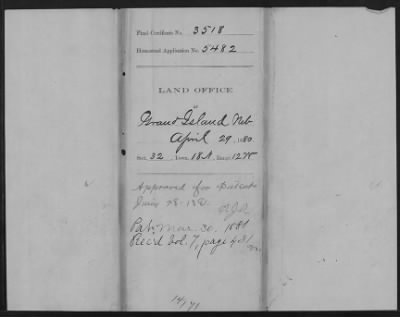 Final Certificate No. 3518
Homestead Application No. 5482
LAND OFFICE
at
Grand Island Neb
April 29, 1880.
Sect. 32, Town. 18 N, Range 12 W
Approved for Patent
Pat. Mar. 30. 1881
Rec'd Vol. 7, page 431